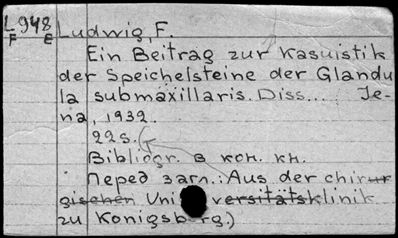 L 948
F E
Ludwig, F.
Ein Beitrag zur Kasuistik
der Speichelsteine der Glandu
la submaxillaris. Diss... Je-
na, 1932.
22s.
Bibliogr. в кон. кн.
Перед загл.: Aus der chirur
gischen Universitätsklinik
zu Konigsberg.)